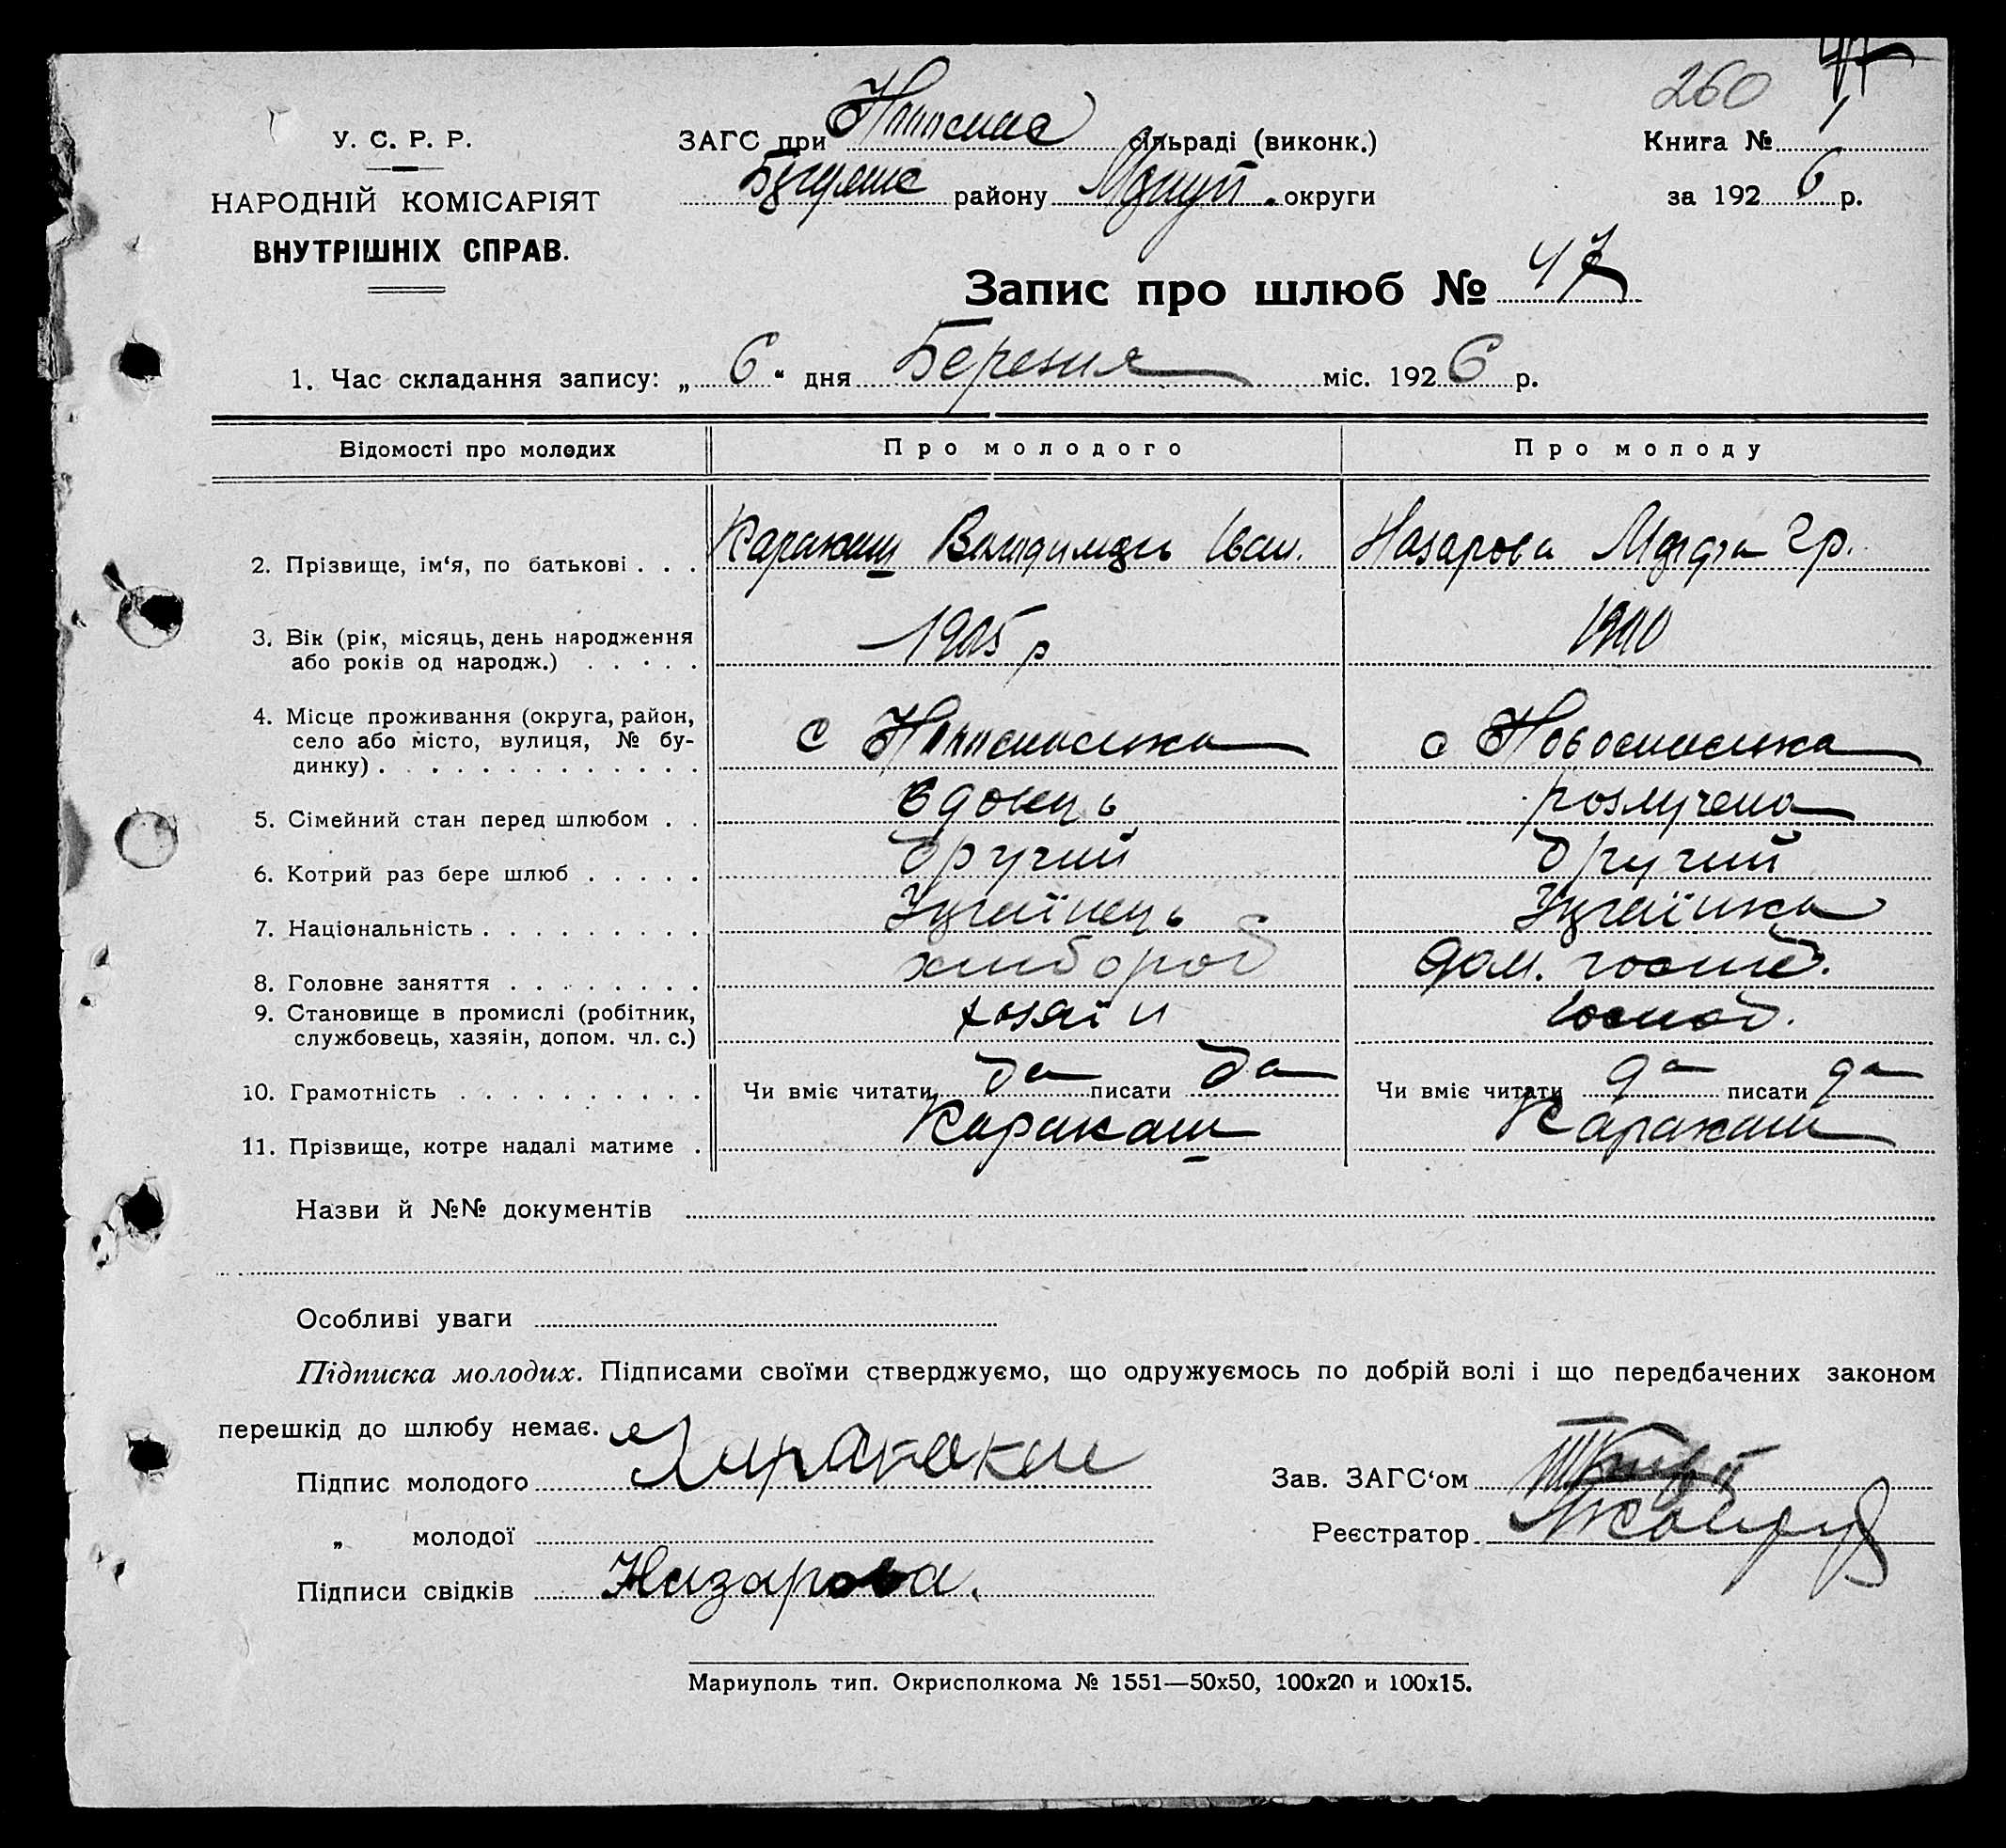 260
У. С. Р. Р.
ЗАГС при сільраді (виконк.)
Книга № 1
НАРОДНІЙ КОМІСАРІЯТ
району округи
за 1926 р.
ВНУТРІШНІХ СПРАВ.
Запис про шлюб № 47
1. Час складання запису: „ 6 “ дня Березня міс. 1926 р.
Відомості про молодих
Про молодого
Про молоду
2. Прізвище, ім‘я, по батькові . . .
Каракаш Володимирь Іван.
Назарова Гр.
3. Вік (рік, місяць, день народження
або років од народж.) . . . . .
1905 р
1900
4. Місце проживання (округа, район,
село або місто, вулиця, № бу-
динку) . . . . . . . . . . . . .
с
с Новоспасівка
5. Сімейний стан перед шлюбом . .
вдовець
розлучена
6. Котрий раз бере шлюб . . . . .
другий
другий
7. Національність . . . . . . . . .
Українець
Українка
8. Головне заняття . . . . . . . .
хлібороб
дом. госпо.
9. Становище в промислі (робітник,
службовець, хазяін, допом. чл. с.)
хозяїн
господ.
10. Грамотність . . . . . . . . . . .
Чи вміє читати да писати да
Чи вміє читати да писати да
11. Прізвище, котре надалі матиме .
Каракаш
Каракаш
Назви й №№ документів
Особливі уваги
Підписка молодих. Підписами своїми стверджуємо, що одружуємось по добрій волі і що передбачених законом
перешкід до шлюбу немає.
Підпис молодого
Зав. ЗАГС‘ом
„ молодої
Реєстратор
Підписи свідків Назарова.
Мариуполь тип. Окрисполкома № 1551—50х50, 100х20 и 100х15.